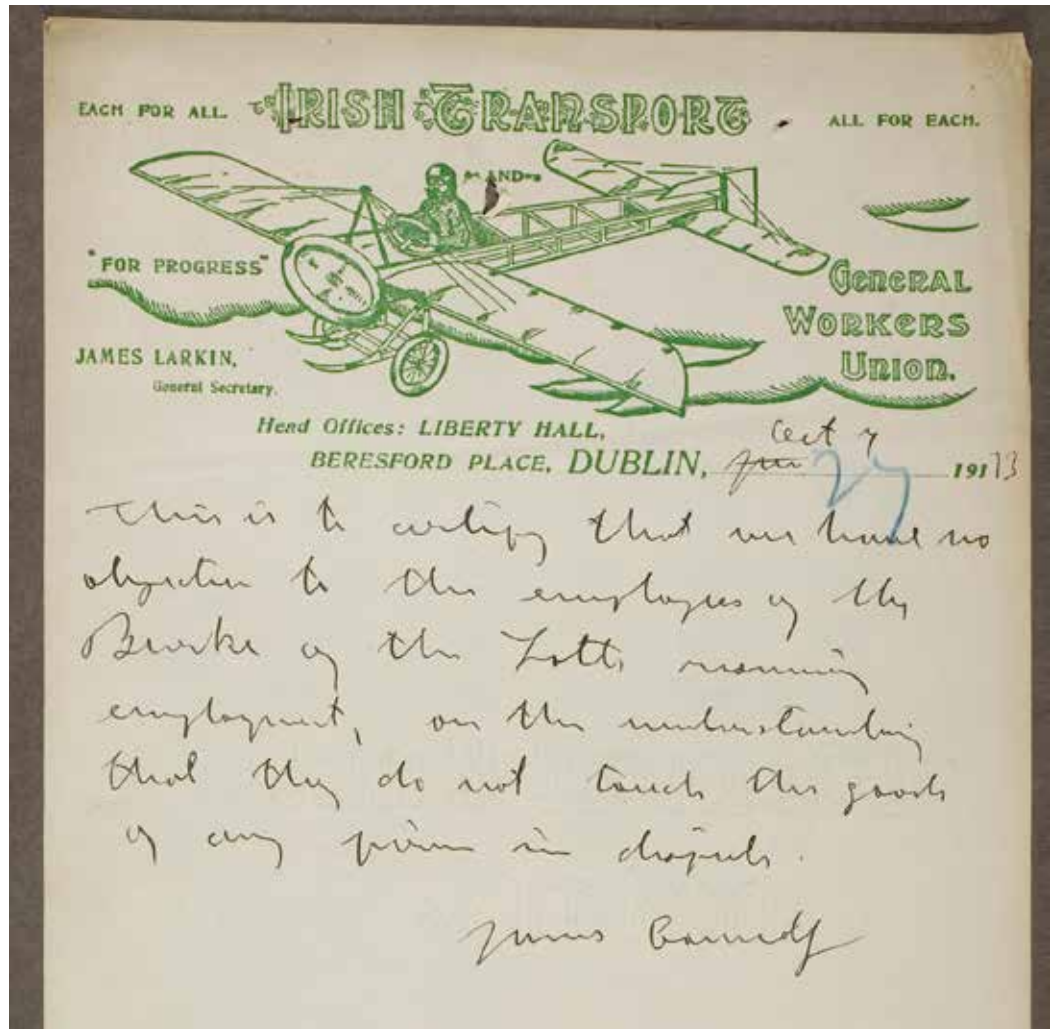 EACH FOR ALL. THE IRISH TRANSPORT ALL FOR EACH.
AND
"FOR PROGRESS"
GENERAL
WORKERS
UNION.
JAMES LARKIN,
General Secretary.
Head Offices: LIBERTY HALL,
Oct 7
BERESFORD PLACE, DUBLIN, 27 1913
This is to certify that we have no
objection to the employees of the
of the Lotts resuming
employment, on the understanding
that they do not touch the goods
of any firm in dispute.
James Connolly